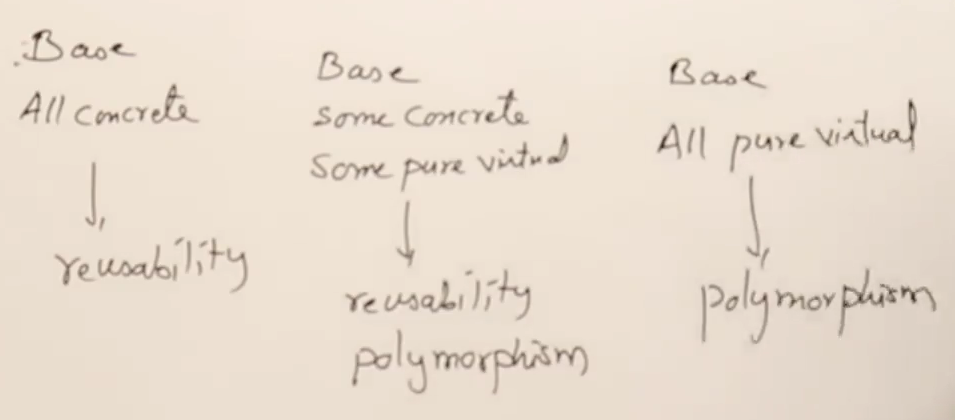 Base
All concrete
reusability
Base
Some Concrete
Some pure virtual
reusability
polymorphism
Base
All pure virtual
polymorphism